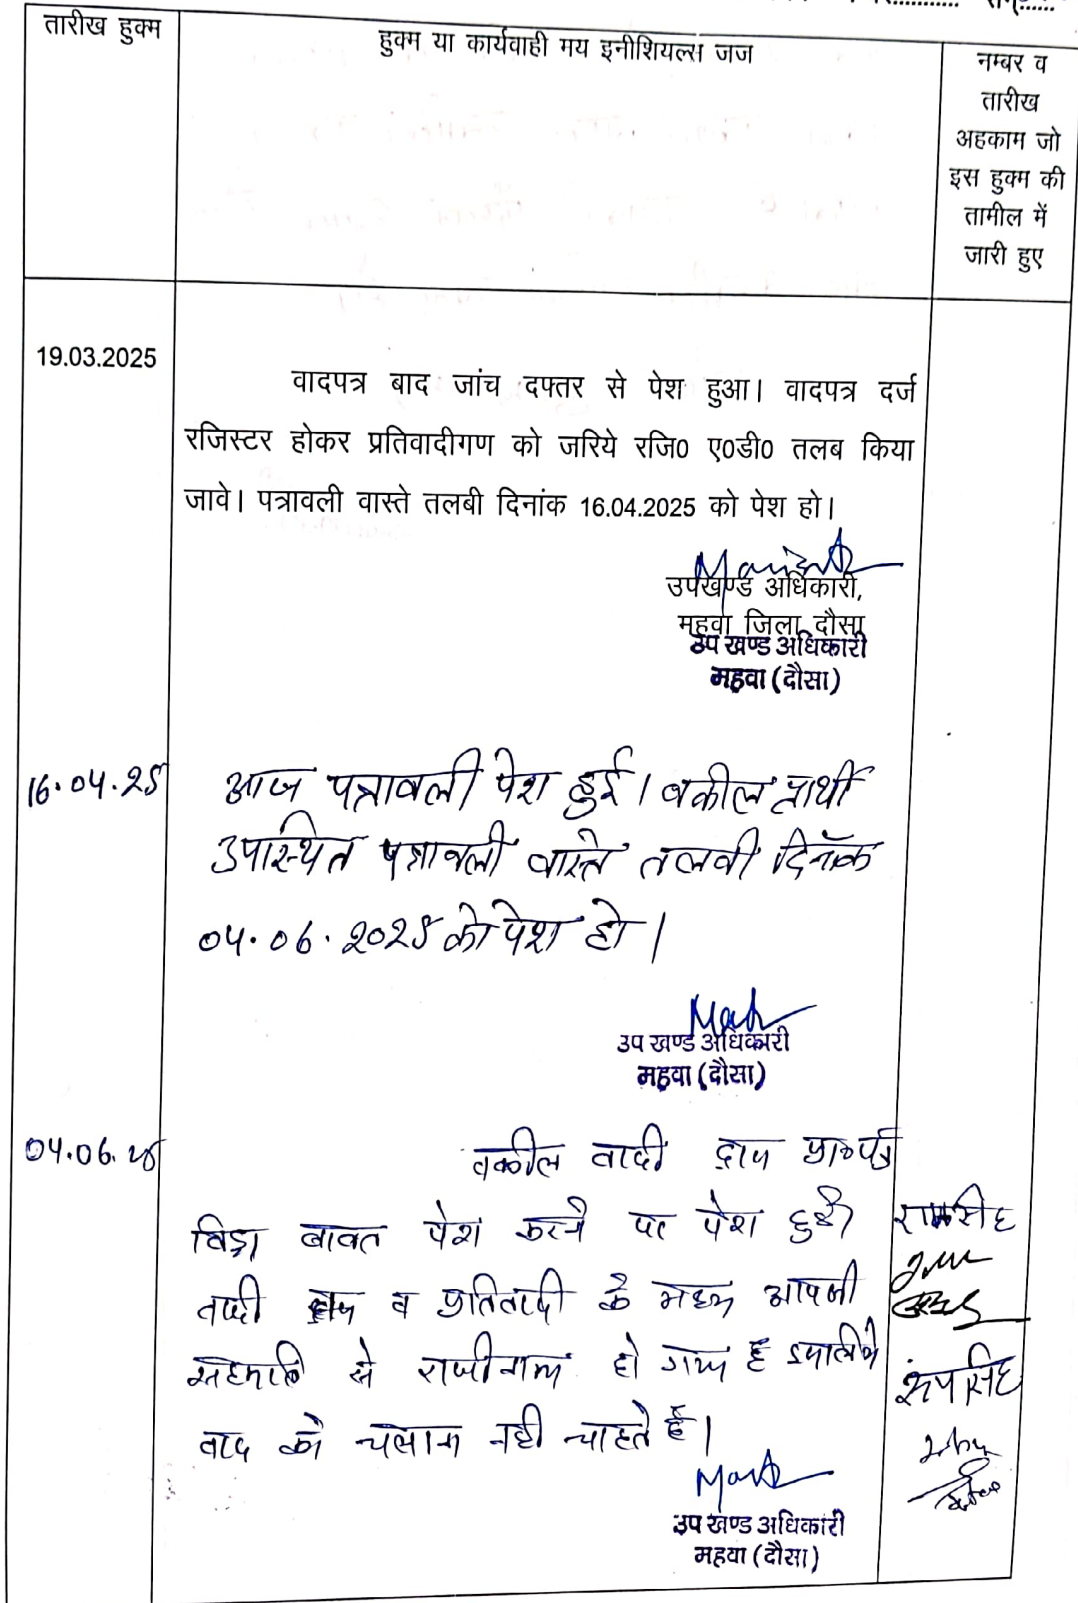 तारीख हुक्म
हुक्म या कार्यवाही मय इनीशियल्स जज
नम्बर व
तारीख
अहकाम जो
इस हुक्म की
तामील में
जारी हुए
19.03.2025
वादपत्र बाद जांच दफ्तर से पेश हुआ। वादपत्र दर्ज
रजिस्टर होकर प्रतिवादीगण को जरिये रजि0 ए0डी0 तलब किया
जावे। पत्रावली वास्ते तलबी दिनांक 16.04.2025 को पेश हो।
उपखण्ड अधिकारी,
महवा जिला दौसा
उप खण्ड अधिकारी
महवा (दौसा)
16.04.25
आज पत्रावली पेश हुई। वकील प्रार्थी
उपस्थित पत्रावली वास्ते तलबी दिनाँक
04.06.2025 को पेश हो।
उप खण्ड अधिकारी
महवा (दौसा)
04.06.25
वकील वादी द्वारा प्रा०पत्र
विड्रा बाबत पेश करने पर पेश हुई।
वादी व प्रतिवादी के मध्य आपसी
सहमति से राजीनामा हो गया है इसलिये
वाद को चलाना नही चाहते हैं।
रामसिंह
रूपसिंह
उप खण्ड अधिकारी
महवा (दौसा)